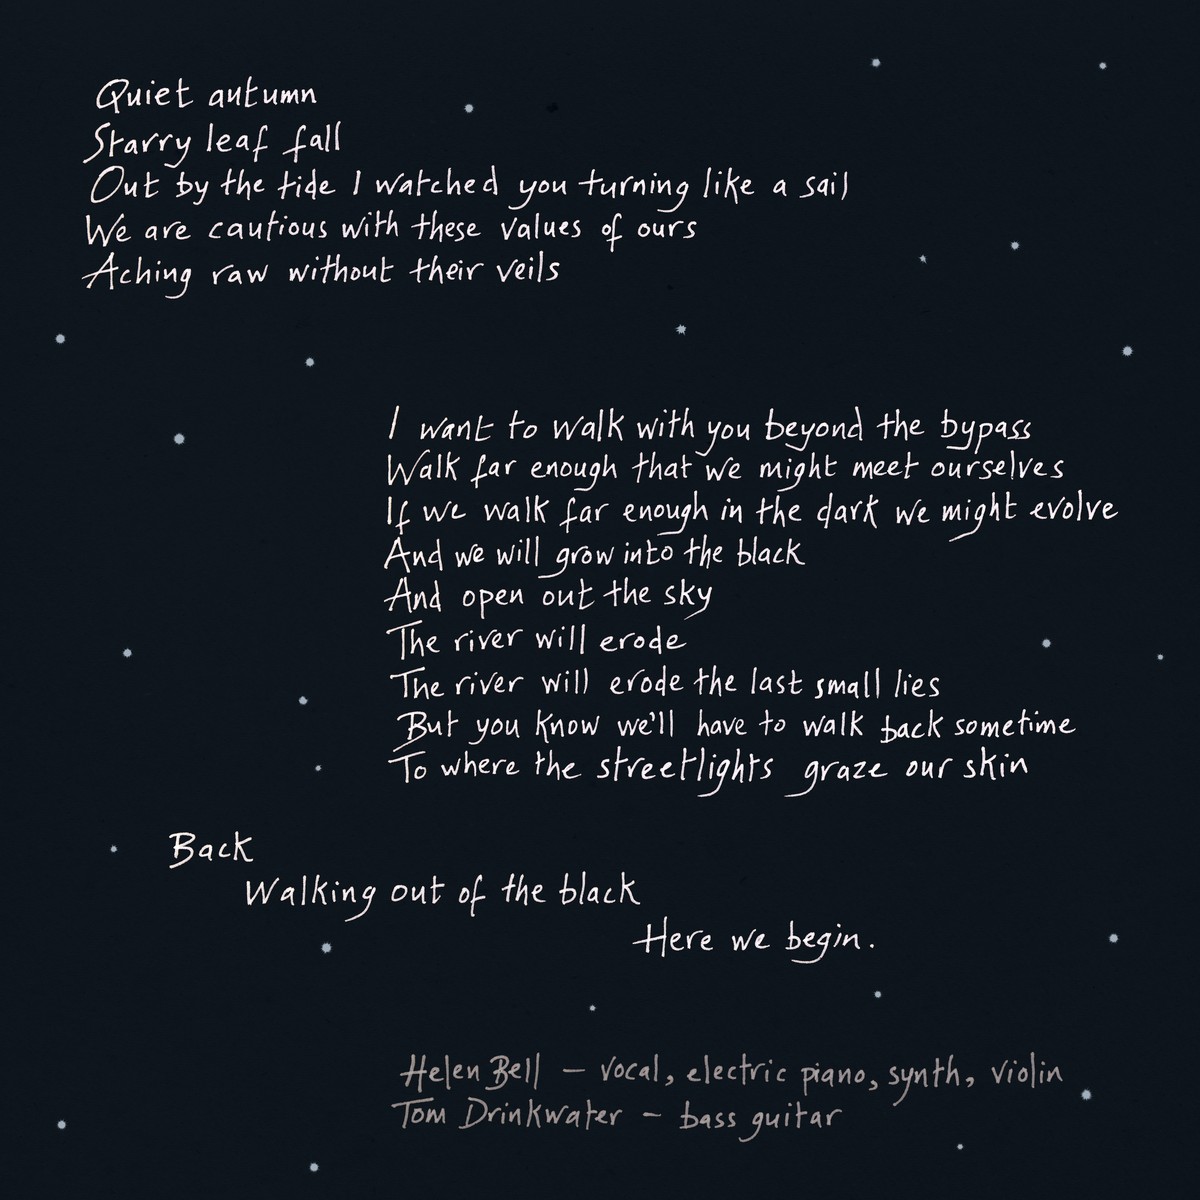 Quiet autumn
Starry leaf fall
Out by the tide I watched you turning like a sail
We are cautious with these values of ours
Aching raw without their veils
I want to walk with you beyond the bypass
Walk far enough that we might meet ourselves
If we walk far enough in the dark we might evolve
And we will grow into the black
And open out the sky
The river will erode
The river will erode the last small lies
But you know we'll have to walk back sometime
To where the streetlights graze our skin
Back
Walking out of the black
Here we begin.
Helen Bell – vocal, electric piano, synth, violin
Tom Drinkwater – bass guitar